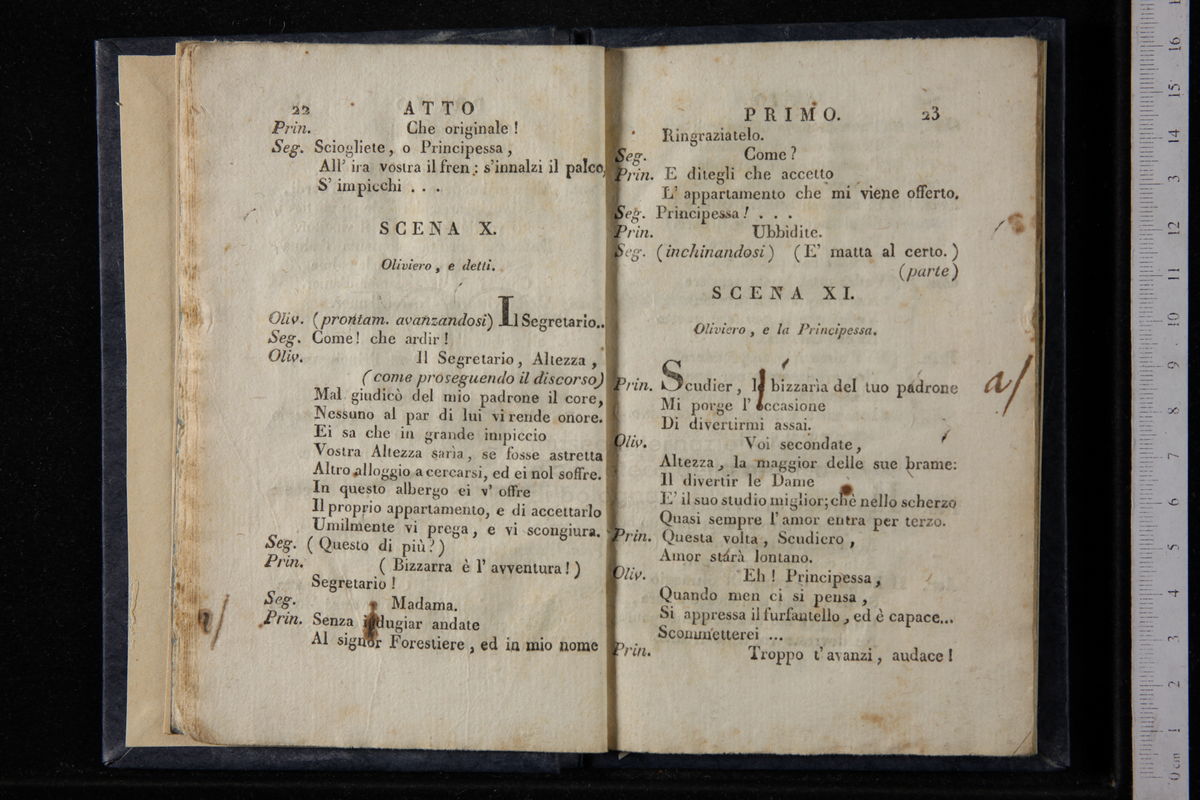 22 ATTO
Prin. Che originale !
Seg. Sciogliete, o Principessa,
All' ira vostra il fren; s'innalzi il palco,
S' impicchi . . .
SCENA X.
Oliviero, e detti.
Oliv. (prontam. avanzandosi) Il Segretario..
Seg. Come! che ardir !
Oliv. Il Segretario, Altezza,
(come proseguendo il discorso)
Mal giudicò del mio padrone il core,
Nessuno al par di lui vi rende onore.
Ei sa che in grande impiccio
Vostra Altezza sarìa, se fosse astretta
Altro alloggio a cercarsi, ed ei nol soffre.
In questo albergo ei v' offre
Il proprio appartamento, e di accettarlo
Umilmente vi prega, e vi scongiura.
Seg. ( Questo di più?)
Prin. ( Bizzarra è l' avventura!)
Segretario !
Seg. Madama.
Prin. Senza indugiar andate
Al signor Forestiere, ed in mio nome
PRIMO. 23
Ringraziatelo.
Seg. Come ?
Prin. E ditegli che accetto
L' appartamento che mi viene offerto.
Seg. Principessa! . . .
Prin. Ubbidite.
Seg. (inchinandosi) (E' matta al certo.)
(parte)
SCENA XI.
Oliviero, e la Principessa.
Prin. Scudier, la bizzarìa del tuo padrone
Mi porge l' occasione
Di divertirmi assai.
Oliv. Voi secondate,
Altezza, la maggior delle sue brame:
Il divertir le Dame
E' il suo studio miglior; chè nello scherzo
Quasi sempre l' amor entra per terzo.
Prin. Questa volta, Scudiero,
Amor starà lontano.
Oliv. Eh ! Principessa,
Quando men ci si pensa,
Si appressa il furfantello, ed è capace...
Scommetterei ...
Prin. Troppo t' avanzi, audace !
a/
0 cm 1 2 3 4 5 6 7 8 9 10 11 12 13 14 15 16